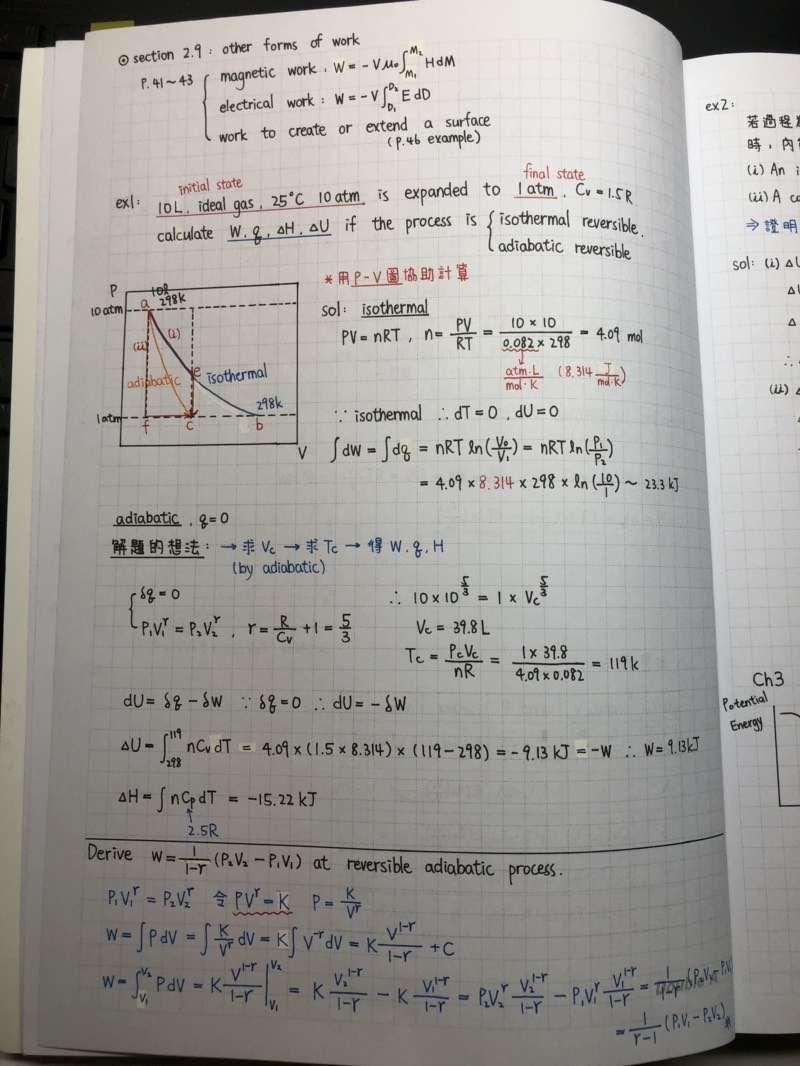 ⊙ section 2.9 : other forms of work
P.41~43 { magnetic work : W = -Vμ₀∫_{M₁}^{M₂} HdM
electrical work : W = -V∫_{D₁}^{D₂} E dD
work to create or extend a surface
(P.46 example)
initial state
final state
ex1: 10L, ideal gas, 25°C 10 atm is expanded to 1 atm. Cv = 1.5R
calculate W, q, ΔH, ΔU if the process is { isothermal reversible.
adiabatic reversible
P
10ℓ
298k
10 atm
a
(i)
(ii)
e
adiabatic
isothermal
298k
1 atm
f
c
b
V
*用P-V圖協助計算
sol: isothermal
PV = nRT , n = PV/RT = 10 × 10 / 0.082 × 298 = 4.09 mol
atm·L/mol·K (8.314 J/mol·K)
∵ isothermal ∴ dT = 0 , dU = 0
∫dW = ∫dq = nRT ln(V₂/V₁) = nRT ln(P₁/P₂)
= 4.09 × 8.314 × 298 × ln(10/1) ~ 23.3 kJ
adiabatic , q = 0
解題的想法: → 求 Vc → 求 Tc → 得 W, q, H
(by adiabatic)
{ δq = 0
P₁V₁^r = P₂V₂^r , r = R/Cv + 1 = 5/3
∴ 10 × 10^{5/3} = 1 × Vc^{5/3}
Vc = 39.8 L
Tc = PcVc/nR = 1 × 39.8 / 4.09 × 0.082 = 119 k
dU = δq - δW ∵ δq = 0 ∴ dU = -δW
ΔU = ∫_{298}^{119} nCv dT = 4.09 × (1.5 × 8.314) × (119 - 298) = -9.13 kJ = -W ∴ W = 9.13 kJ
ΔH = ∫ nCp dT = -15.22 kJ
↑
2.5R
Derive W = 1/1-r (P₂V₂ - P₁V₁) at reversible adiabatic process.
P₁V₁^r = P₂V₂^r 令 PV^r = K P = K/V^r
W = ∫ PdV = ∫ K/V^r dV = K∫ V^{-r} dV = K V^{1-r}/1-r + C
W = ∫_{V₁}^{V₂} PdV = K V^{1-r}/1-r |_{V₁}^{V₂} = K V₂^{1-r}/1-r - K V₁^{1-r}/1-r = P₂V₂^r V₂^{1-r}/1-r - P₁V₁^r V₁^{1-r}/1-r = 1/1-r
= 1/r-1 (P₁V₁ - P₂V₂)
ex2:
若過程
時, 內
(i) An i
(ii) A co
⇒ 證明
sol: (i) ΔU
Δ
(ii)
Ch3
Potential
Energy